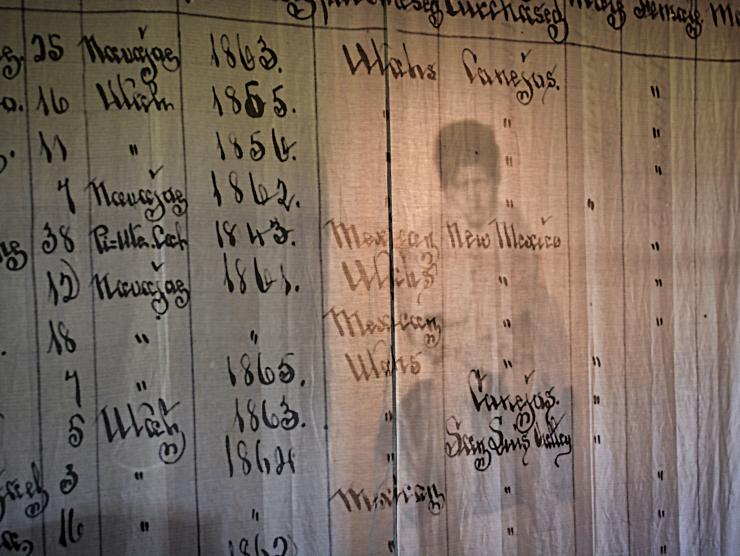 Purchased Male Female
25 Navajoe 1863. Utahs Conejos.
16 Utah 1865. " " "
11 " 1854. " "
7 Navajoe 1862. " "
38 Pi-Ute. 1843. Mexican New Mexico "
12 Navajoe 1861. Utahs " "
18 " " Mexican " "
7 " 1865. Utahs " "
5 Utah 1863. " Conejos. "
1864 " San Luis Valley "
3 " " Mexican " "
16 " 1862 " " "